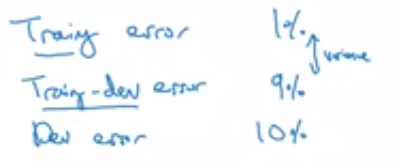 Training error 1%
variance
Training-dev error 9%
Dev error 10%